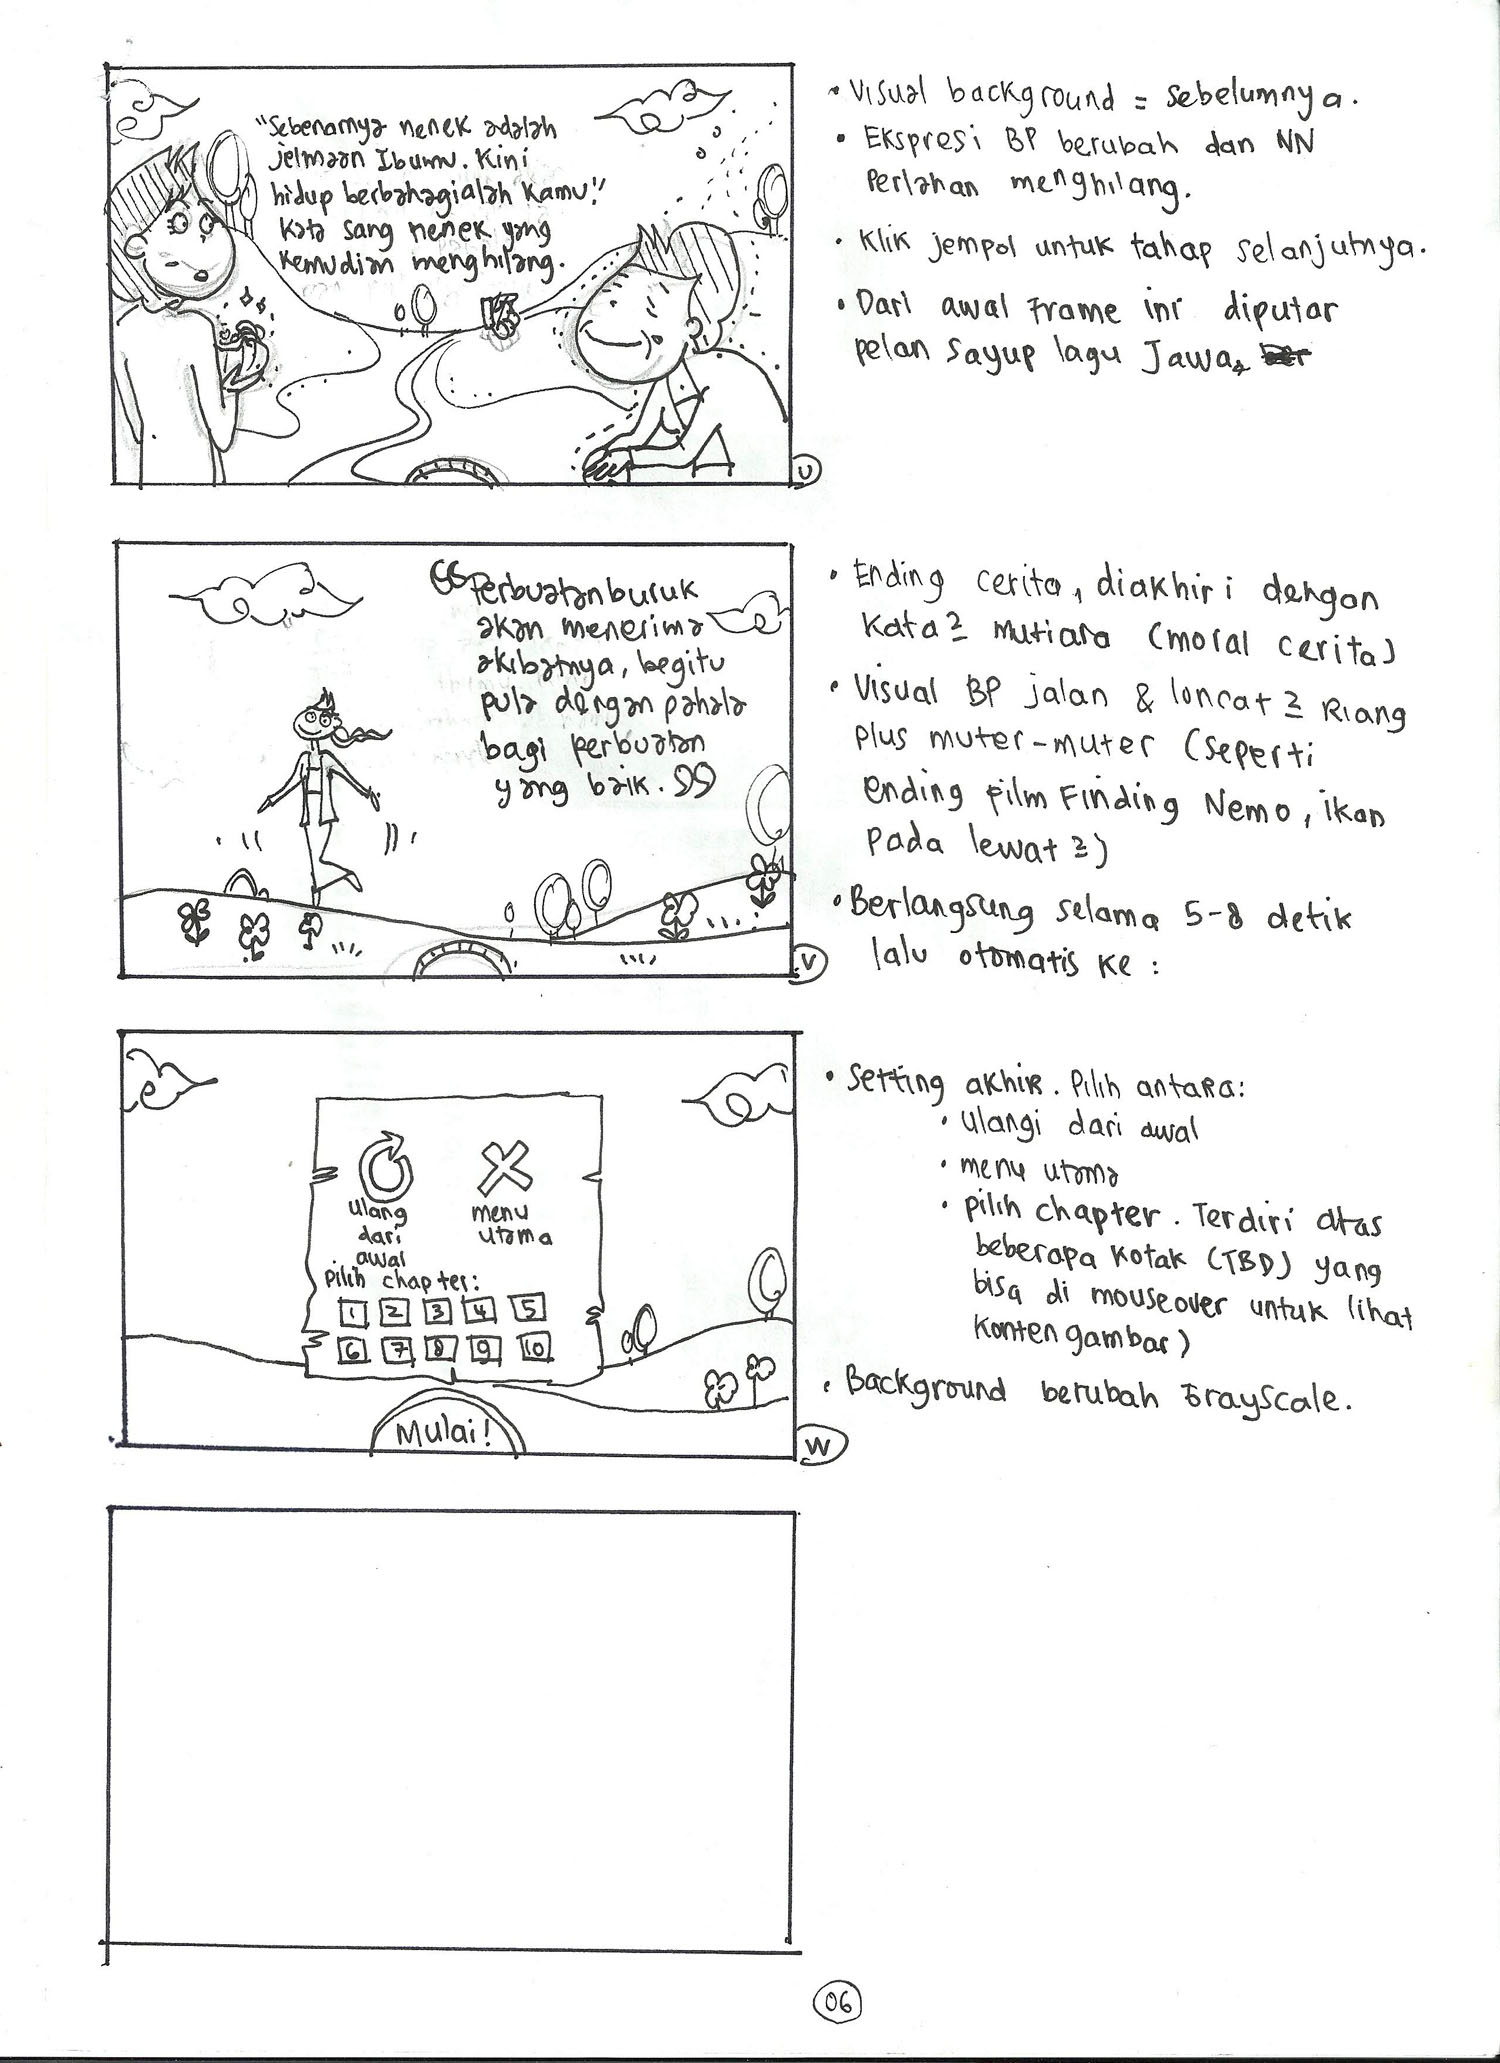 "Sebenarnya nenek adalah
jelmaan Ibumu. Kini
hidup berbahagialah kamu!"
kata sang nenek yang
kemudian menghilang.
U
• Visual background = sebelumnya.
• Ekspresi BP berubah dan NN
perlahan menghilang.
• Klik jempol untuk tahap selanjutnya.
• Dari awal frame ini diputar
pelan sayup lagu Jawa.
“Perbuatan buruk
akan menerima
akibatnya, begitu
pula dengan pahala
bagi perbuatan
yang baik.”
V
• Ending cerita, diakhiri dengan
kata2 mutiara (moral cerita)
• Visual BP jalan & loncat2 Riang
plus muter-muter (seperti
ending film Finding Nemo, ikan
pada lewat2)
• Berlangsung selama 5-8 detik
lalu otomatis ke :
ulang
dari
awal
menu
utama
pilih chapter:
1 2 3 4 5
6 7 8 9 10
Mulai!
W
• Setting akhir. Pilih antara:
• ulangi dari awal
• menu utama
• pilih chapter. Terdiri atas
beberapa kotak (TBD) yang
bisa di mouseover untuk lihat
konten gambar)
• Background berubah Grayscale.
06